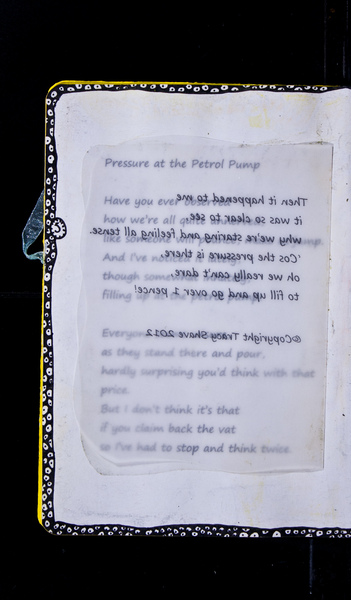 Pressure at the Petrol Pump
Have you ever
how we're all quite
like someone will
And I've noticed
though somewhat
filling up
Everyone
as they stand there and pour,
hardly surprising you'd think with that
price.
But I don't think it's that
if you claim back the vat
so I've had to stop and think twice.
Then it happened to me
it was so clear to see
why we're staring and feeling all tense.
'Cos the pressure is there,
oh we really can't dare
to fill up and go over 1 pence!
©Copyright Tracy Shave 2012